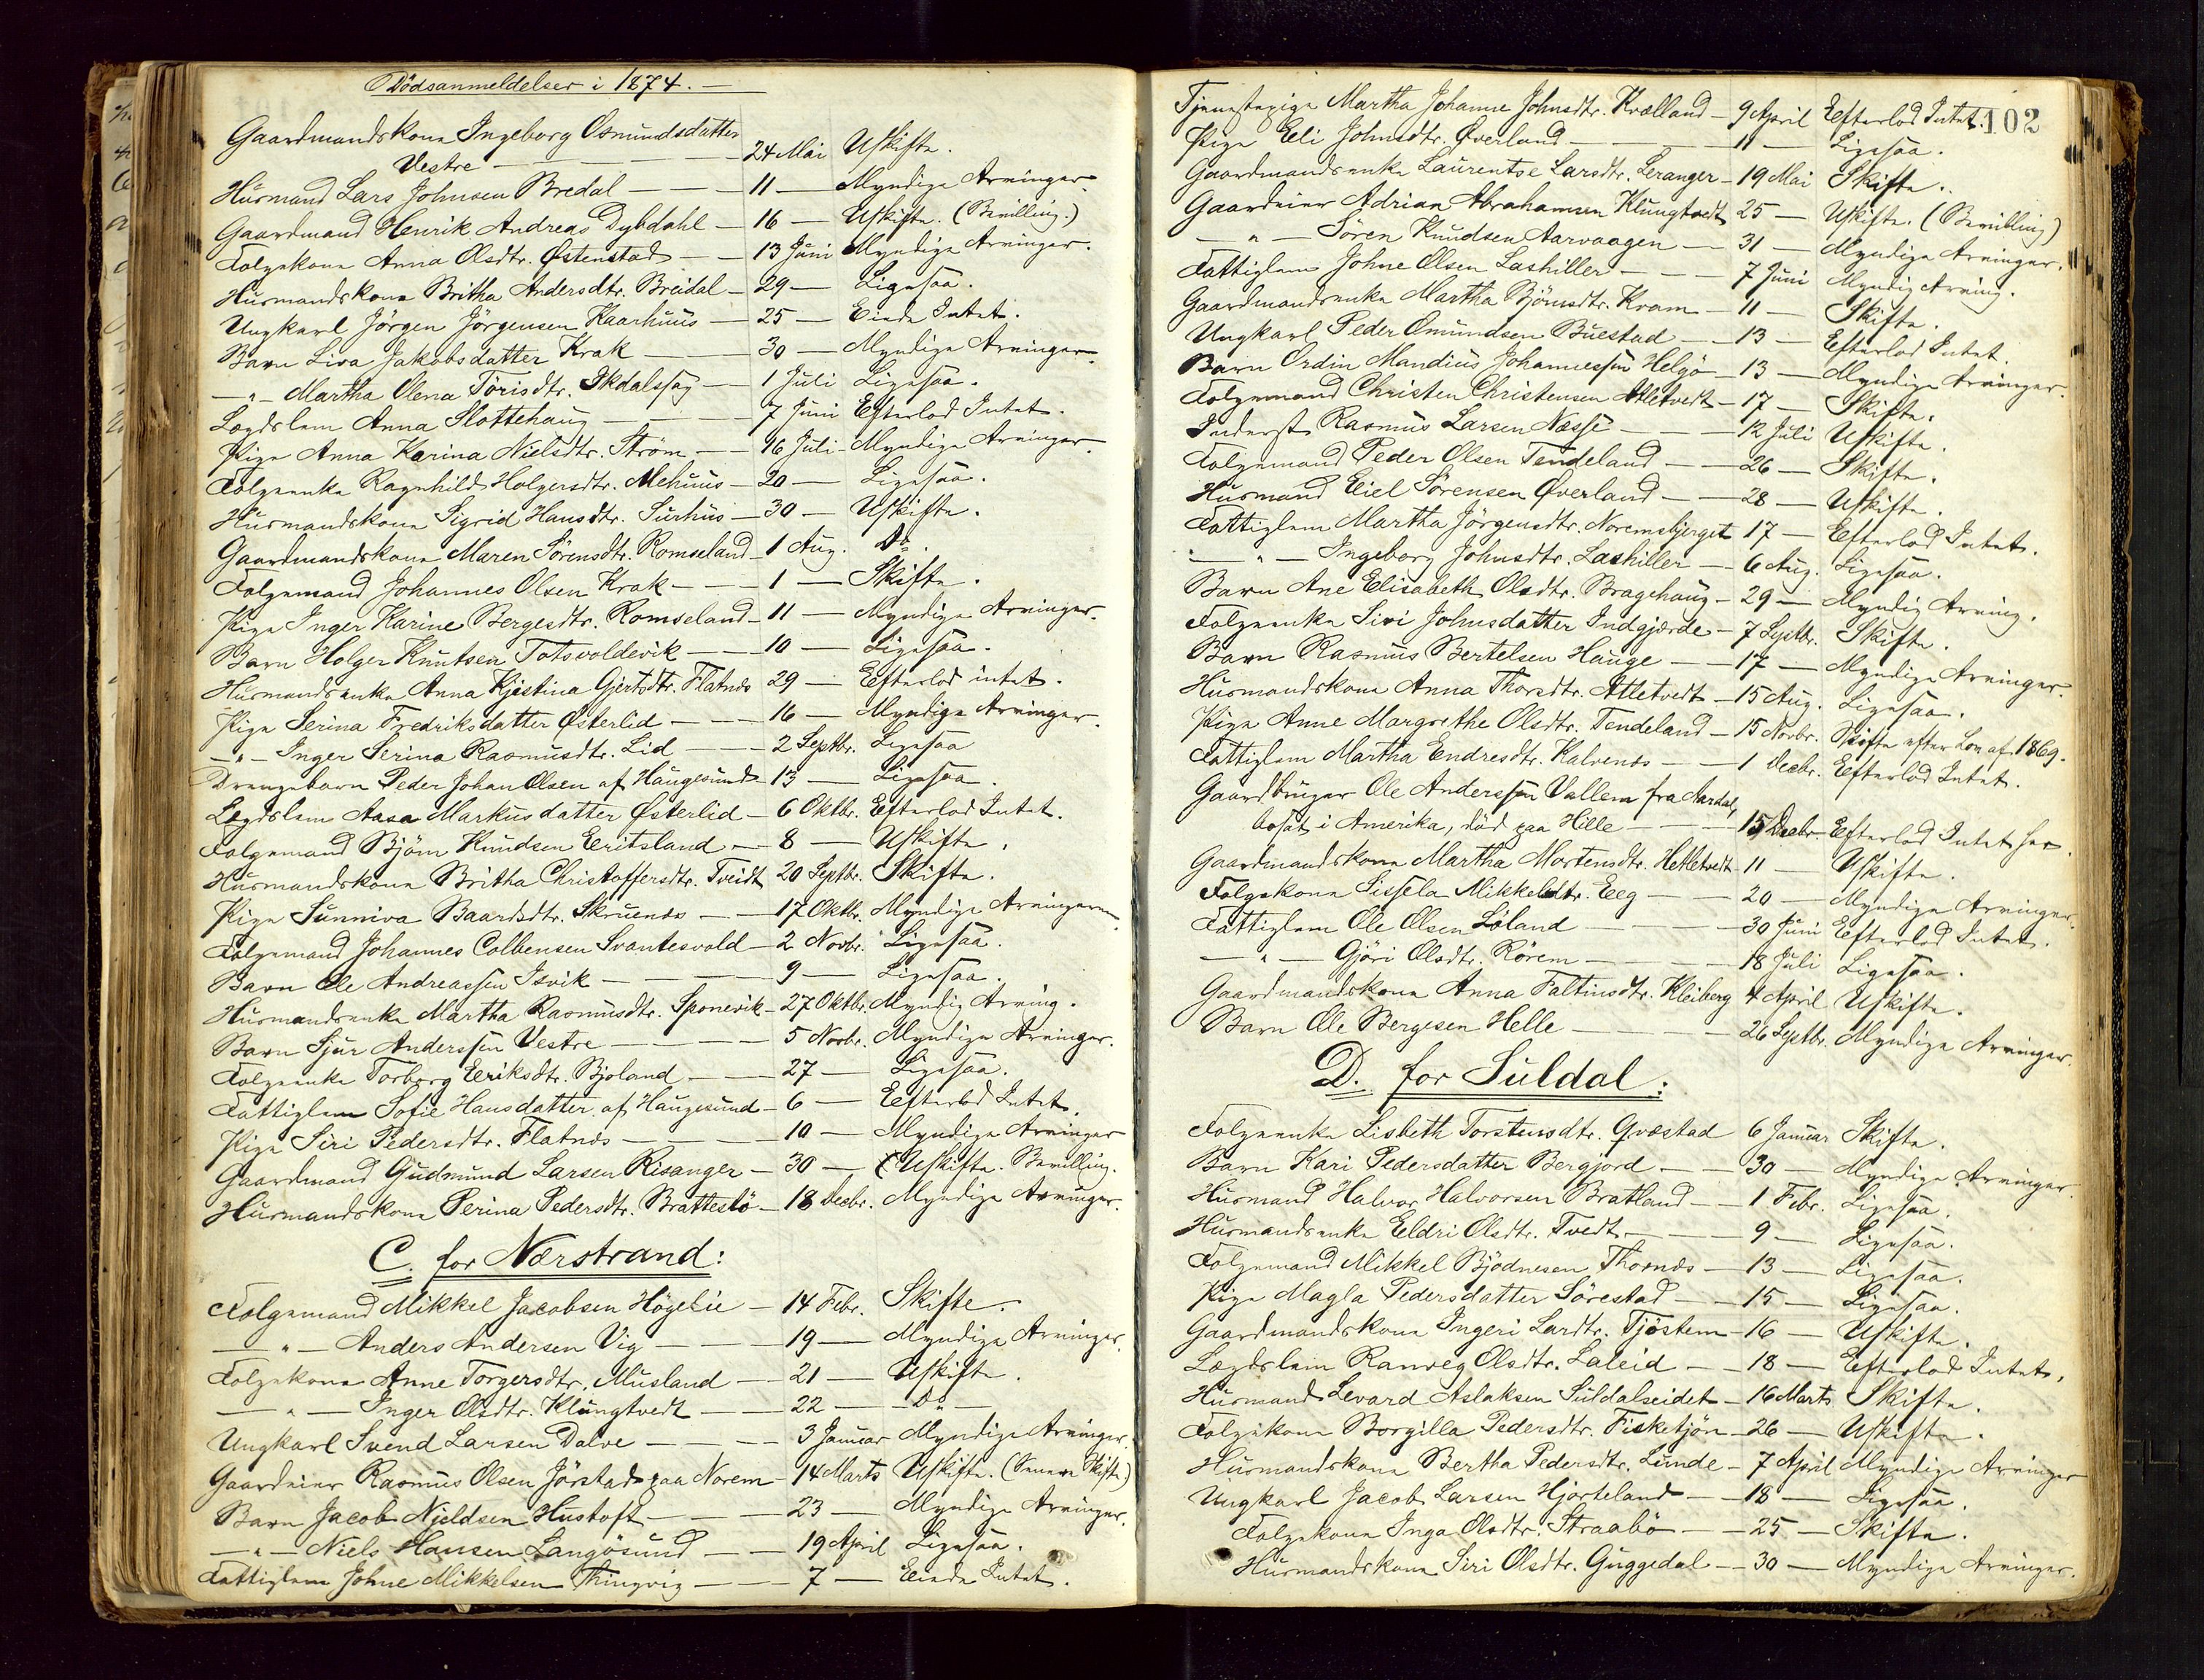 Dödsanmeldelser i 1874. —
Gaardmandskone Ingeborg Osmundsdatter
Vestre — 24 Mai Uskifte.
Husmand Lars Johnsen Bredal — 11 — Myndige Arvinger.
Gaardmand Henrik Andreas Dybdahl — 16 — Uskifte. (Bevilling.)
Folgekone Anna Olsdtr. Østenstad — 13 Juni Myndige Arvinger.
Husmandskone Britha Andersdtr. Breidal — 29 — Ligesaa.
Ungkarl Jörgen Jörgensen Kaarhuus — 25 — Eiede Intet.
Barn Liva Jakobsdatter Krak — 30 — Myndige Arvinger.
—"— Martha Olena Törisdtr. Ekdalssag — 1 Juli Ligesaa.
Lægdslem Anna Slottehaug — 7 Juni Efterlod Intet.
Pige Anna Karina Nielsdtr. Ström — 16 Juli Myndige Arvinger.
Folgeenke Ragnhild Holgersdtr. Mehuus — 20 — Ligesaa.
Husmandskone Sigrid Hansdtr. Surhus — 30 — Uskifte.
Gaardmandskone Maren Sörensdtr. Romseland — 1 Aug. Do.
Folgemand Johannes Olsen Krak — 1 — Skifte.
Pige Inger Karine Bergesdtr. Romseland — 11 — Myndige Arvinger.
Barn Holger Knutsen Totsvoldevik — 10 — Ligesaa.
Husmandsenke Anna Kjestina Gjertsdtr. Flatnes 29 — Efterlod intet.
Pige Serina Fredriksdatter Østerlid — 16 — Myndige Arvinger.
—"— Inger Serina Rasmusdtr. Lid — 2 Septbr. Ligesaa
Drengebarn Peder Johan Olsen af Haugesund 13 — Ligesaa.
Lægdslem Aasa Markusdatter Østerlid — 6 Oktbr. Efterlod Intet.
Folgemand Bjöm Knudsen Eeritsland — 8 — Uskifte.
Husmandskone Britha Christoffersdtr. Tveidt 20 Septbr. Skifte.
Pige Sunniva Baardsdtr. Skruenes — 17 Oktbr. Myndige Arvinger.
Folgemand Johannes Colbensen Svantesvold — 2 Novbr. Ligesaa.
Barn Ole Andreassen Isvik — 9 — Ligesaa.
Husmandsenke Martha Rasmusdtr. Sponevik — 27 Oktbr. Myndig Arving.
Barn Sjur Anderssen Vestre — 5 Novbr. Myndige Arvinger.
Folgeenke Torborg Eeriksdtr. Bjoland — 27 — Ligesaa.
Fattiglem Sofie Hansdatter af Haugesund — 6 — Eefterlod Intet.
Pige Siri Pedersdtr. Flatnes — 10 — Myndige Arvinger
Gaardmand Gudmund Larsen Risanger — 30 — (Uskifte. Bevilling.
Husmandskone Perina Pedersdtr. Brattestö — 18 Decbr. Myndige Arvinger.
C. for Nærstrand:
Folgemand Mikkel Jacobsen Högelie — 14 Febr. Skifte.
—"— Anders Andersen Vig — 19 — Myndige Arvinger.
Folgekone Anne Torgersdtr. Musland — 21 — Uskifte.
—"— Inger Olsdtr. Klungtvedt — 22 — Do —
Ungkarl Svend Larsen Dalve — 3 Januar Myndige Arvinger.
Gaardeier Rasmus Olsen Jörstad paa Norem — 14 Marts Uskifte. (Senere Skifte)
Barn Jacob Nieldsen Hustoft — 23 — Myndige Arvinger.
—"— Niels Hansen Langösund — 19 April Ligesaa.
Fattiglem Johne Mikkelsen Thingvig — 7 — Eiede Intet.
102
Tjenestepige Martha Johanne Johnsdtr. Kvalland — 9 April Eefterlod Intet.
Pige Eeli Johnsdtr. Øverland — 11 — Ligesaa.
Gaardmandsenke Laurentse Larsdtr. Leranger — 19 Mai Skifte.
Gaardeier Adrian Abrahamsen Klungtvedt 25 — Uskifte. (Bevilling)
—"— Sören Knudsen Aarvaagen — 31 — Myndige Arvinger.
Fattiglem Johne Olsen Lashiller — 7 Juni Myndig Arving.
Gaardmandsenke Martha Bjömsdtr. Kvam — 11 — Skifte.
Ungkarl Peder Omundsen Buestad — 13 — Efterlod Intet.
Barn Ordin Mandius Johannessen Helgö — 13 — Myndige Arvinger.
Folgemand Christen Christensen Atletvedt — 17 — Skifte.
Inderst Rasmus Larsen Nesse — 12 Juli Uskifte.
Folgemand Peder Olsen Tendeland — 26 — Skifte.
Husmand Eiel Sörensen Øverland — 28 — Uskifte.
Fattiglem Martha Jörgensdtr. Noremsbjerget 17 — Efterlod Intet.
—"— Ingeborg Johnsdtr. Lashiller — 6 Aug. Ligesaa.
Barn Ane Elisabeth Olsdtr. Bragehaug — 29 — Myndig Arving.
Folgeenke Sivi Johnsdatter Indgjærde — 7 Septbr. Skifte.
Barn Rasmus Bertelsen Hauge — 17 — Myndige Arvinger.
Husmandskone Anna Thorsdtr. Atletvedt — 15 Aug. Ligesaa.
Pige Anne Margrethe Olsdtr. Tendeland — 15 Novbr. Skifte efter Lov af 1869.
Fattiglem Martha Endresdtr. Kalvenes — 1 Decbr. Eefterlod Intet.
Gaardbruger Ole Anderssen Vallem fra Aardal,
bosat i Amerika, död paa Hille — 15 Decbr. Eefterlod Intet her.
Gaardmandskone Martha Mortensdtr. Hetletvedt 11 — Uskifte.
Folgekone Sissela Mikkelsdtr. Eeg — 20 — Myndige Arvinger.
Fattiglem Ole Olsen Löland — 30 Juni Eefterlod Intet.
—"— Gjöri Olsdtr. Rörem — 18 Juli Ligesaa.
Gaardmandskone Anna Faltinsdtr. Kleiberg 4 April Uskifte.
Barn Ole Bergesen Helle — 26 Septbr. Myndige Arvinger.
D. for Suldal:
Folgeenke Lisbeth Torstensdtr. Qvæstad 6 Januar Skifte.
Barn Kari Pedersdatter Bergjord — 30 — Myndige Arvinger.
Husmand Halvor Halvorsen Bratland — 1 Febr. Ligesaa.
Husmandsenke Eeldri Olsdtr. Tvedt — 9 — Ligesaa.
Folgemand Mikkel Bjödnesen Thornes — 13 — Ligesaa.
Pige Magla Pedersdatter Sörestad — 15 — Ligesaa.
Gaardmandskone Ingeri Larsdtr. Tjöstem — 16 — Uskifte.
Lægdslem Ranveg Olsdtr. Laleid — 18 — Eefterlod Intet.
Husmand Levard Aslaksen Suldalseidet — 16 Marts Skifte.
Folgekone Borgilla Pedersdtr. Fisketjön — 26 — Uskifte.
Husmandskone Bertha Pedersdtr. Lunde — 7 April Myndige Arvinger
Ungkarl Jacob Larsen Hjorteland — 18 — Ligesaa.
Folgekone Inga Olsdtr. Straabö — 25 — Skifte.
Husmandskone Siri Olsdtr. Guggedal — 30 — Myndige Arvinger.